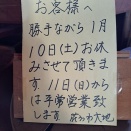 お客様へ
勝手ながら1月
10日(土)お休
みさせて頂きま
す11日(日)から
は平常営業致
します